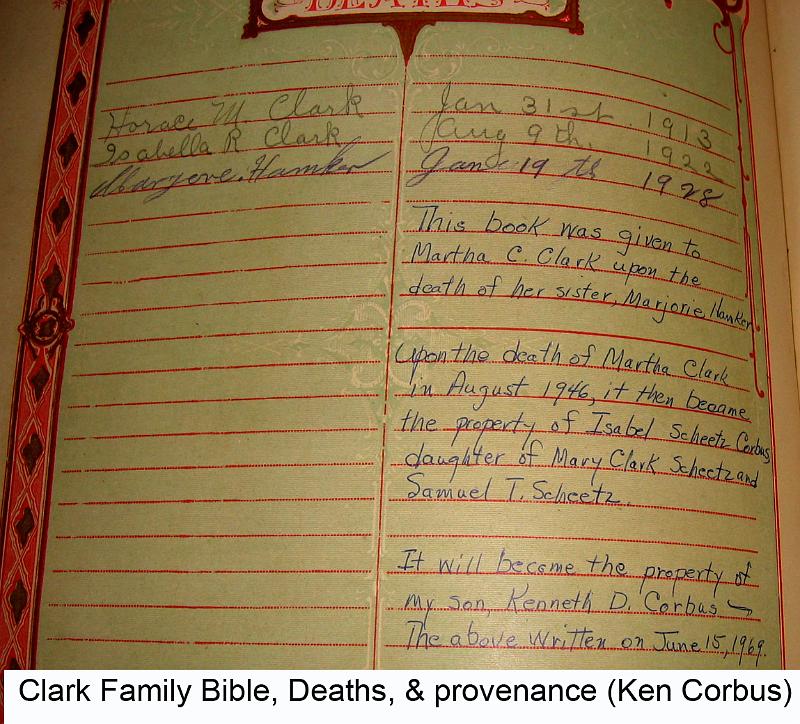 DEATHS
Horace M Clark Jan 31st. 1913
Isabella R Clark Aug 9th. 1922
Marjorie. Hamker Jan 19 th 1928
This book was given to
Martha C. Clark upon the
death of her sister, Marjorie Hamker
Upon the death of Martha Clark
in August 1946, it then became
the property of Isabel Scheetz Corbus
daughter of Mary Clark Scheetz and
Samuel T. Scheetz.
It will become the property of
my son, Kenneth D. Corbus
The above written on June 15, 1969.
Clark Family Bible, Deaths, & provenance (Ken Corbus)